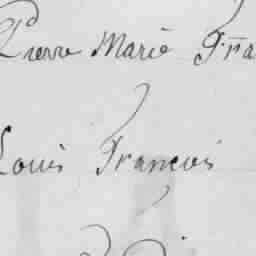 Pierre Marie Fra
Louis Francois